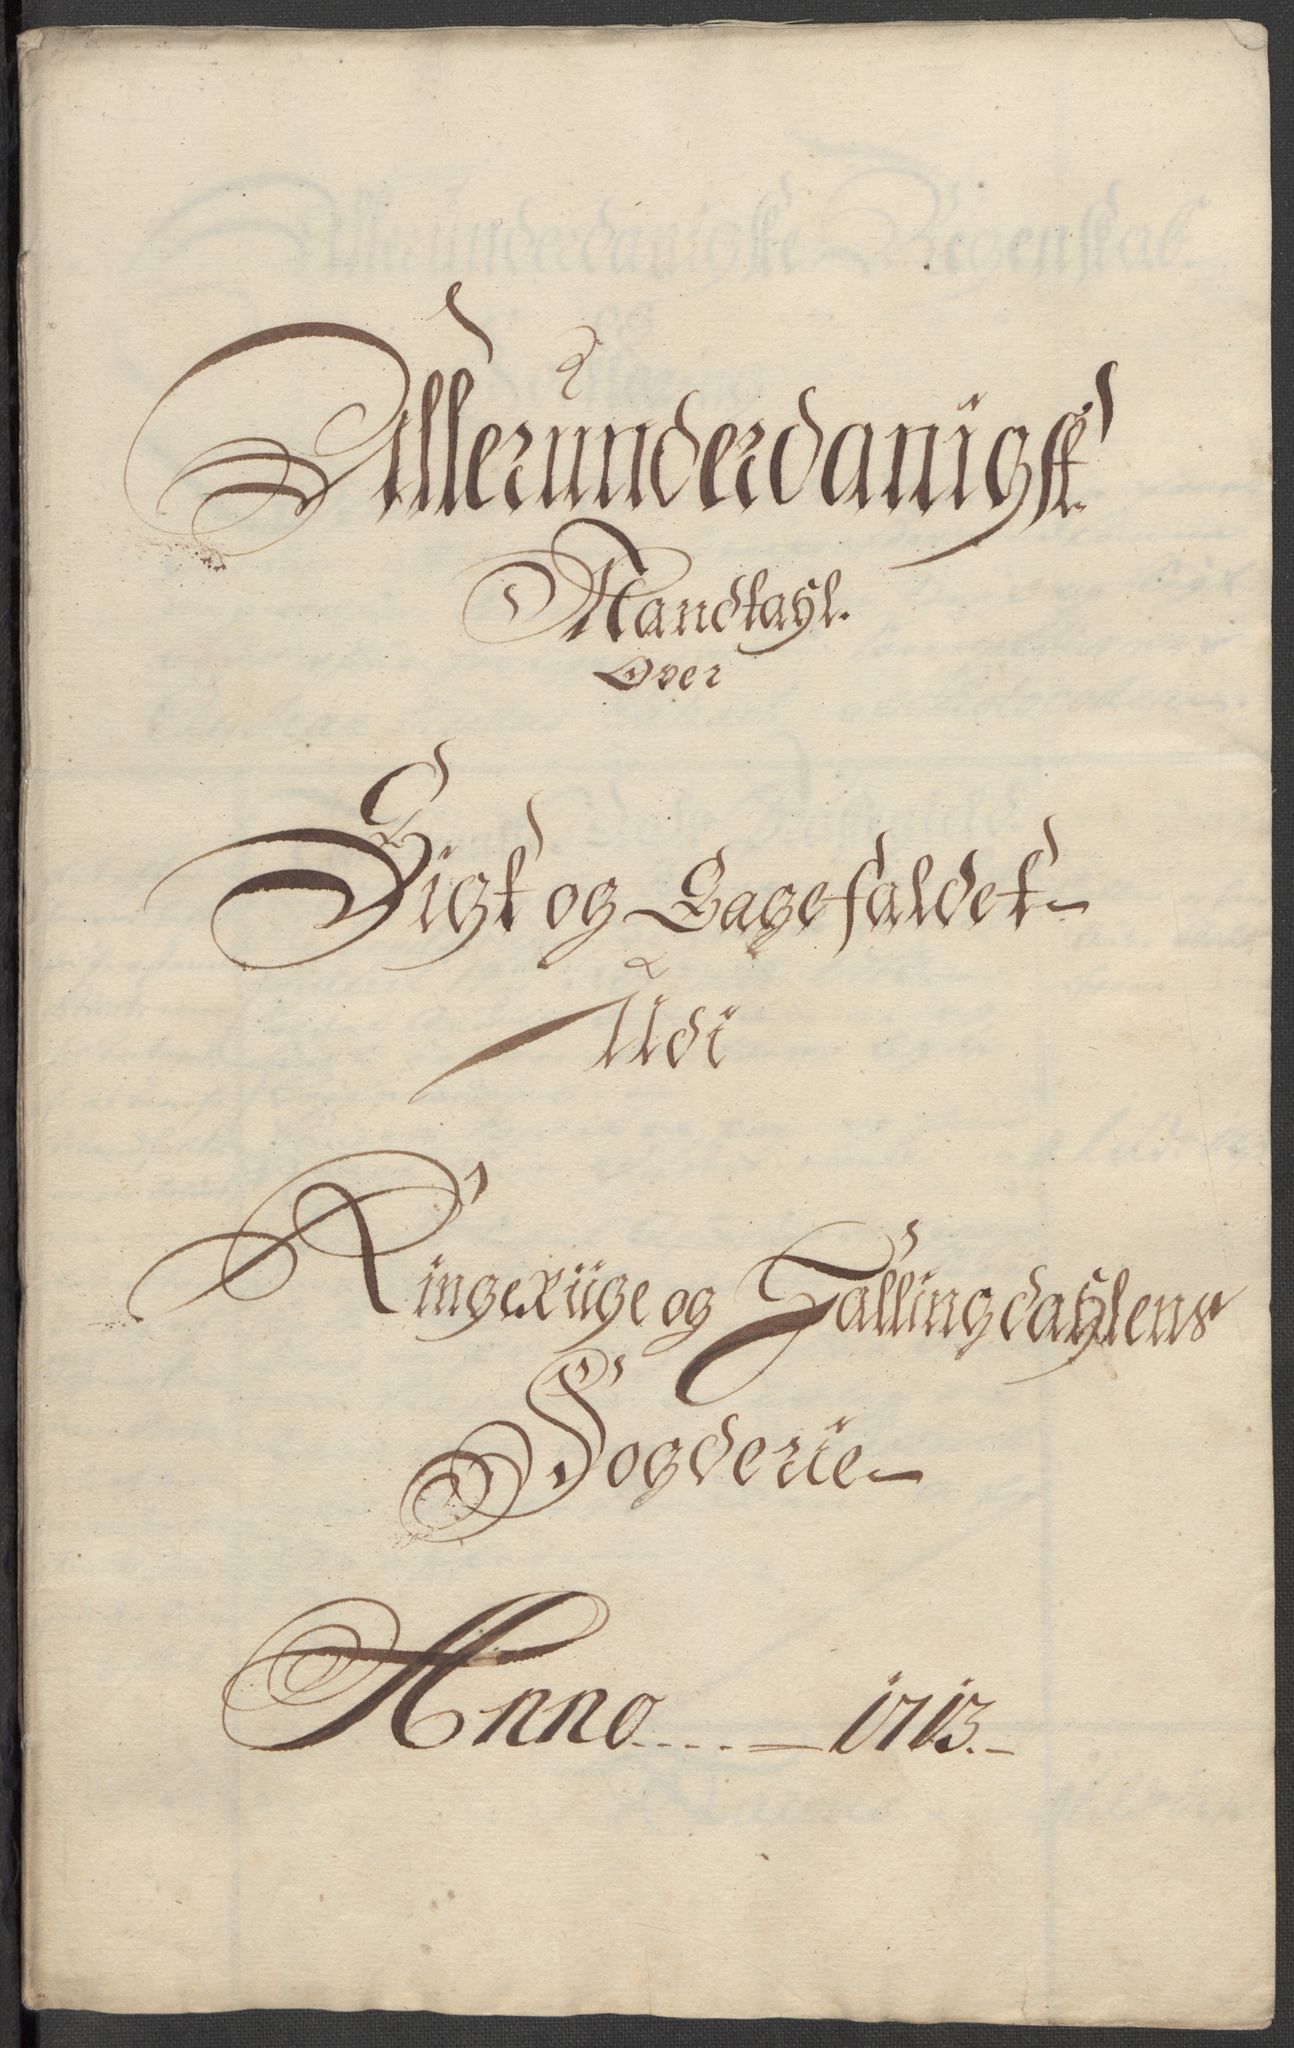 Allerunderdanigst.
Mandtahl.
Over
Sigt og Sagefaldet
Udi
Ringerüge og Hallingdahlens
Fogderie
Anno 1713.